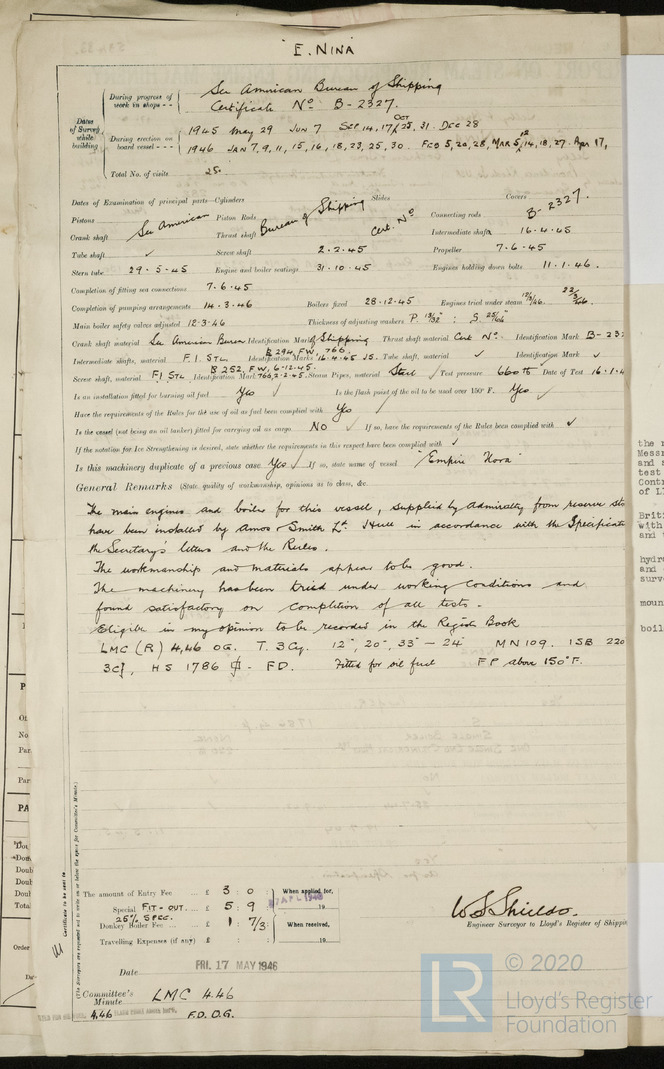 "E. NINA
Dates of Survey while building
During progress of work in shops - -
See American Bureau of Shipping
Certificate No. B-2327.
During erection on board vessel - - -
1945 May 29 Jun 7 Sep 14, 17, Oct 25, 31. Dec 28
1946 Jan 7, 9, 11, 15, 16, 18, 23, 25, 30. Feb 5, 20, 28, Mar 5, 12, 14, 18, 27. Apr 17,
Total No. of visits 25.
Dates of Examination of principal parts—Cylinders Slides Covers
Pistons Piston Rods Connecting rods
See American Bureau of Shipping Cert. No B-2327.
Crank shaft Thrust shaft Intermediate shafts 16.4.45
Tube shaft ✓ Screw shaft 2.2.45 Propeller 7.6.45
Stern tube 29.5.45 Engine and boiler seatings 31.10.45 Engines holding down bolts 11.1.46.
Completion of fitting sea connections 7.6.45
Completion of pumping arrangements 14.3.46 Boilers fixed 28.12.45 Engines tried under steam 12/3/46. 22/3/46.
Main boiler safety valves adjusted 12.3.46 Thickness of adjusting washers P. 13/32" : S. 25/64"
Crank shaft material See American Bureau of Shipping Identification Mark Thrust shaft material Cert No. Identification Mark B-232
Intermediate shafts, material F.I. STL Identification Marks B 294, F.W, 766, 16.4.45 JS. Tube shaft, material ✓ Identification Mark ✓
Screw shaft, material F.I STL Identification Mark B 252. F.W, 6-12-45. 766, 2-2-45. Steam Pipes, material Steel ✓ Test pressure 660 lb Date of Test 16.1.4
Is an installation fitted for burning oil fuel Yes ✓ Is the flash point of the oil to be used over 150° F. Yes ✓
Have the requirements of the Rules for the use of oil as fuel been complied with Yes
Is the vessel (not being an oil tanker) fitted for carrying oil as cargo. NO ✓ If so, have the requirements of the Rules been complied with ✓
If the notation for Ice Strengthening is desired, state whether the requirements in this respect have been complied with ✓
Is this machinery duplicate of a previous case Yes ✓ If so, state name of vessel "Empire Nora"
General Remarks (State quality of workmanship, opinions as to class, &c.
The main engines and boiler for this vessel, supplied by Admiralty from reserve sto
have been installed by Amos & Smith Ld. Hull in accordance with the Specificati
the Secretary's letters and the Rules.
The workmanship and materials appear to be good.
The machinery has been tried under working conditions and
found satisfactory on completion of all tests.
Eligible in my opinion to be recorded in the Register Book
LMC (R) 4,46 OG. T. 3Cy. 12", 20", 33" - 24" MN 109. 1SB 220
HS 1786 - FD. Fitted for oil fuel FP above 150°F.
The amount of Entry Fee ... £ 3 : 0 : When applied for,
Special FIT-OUT. ... £ 5 : 9 : 19
25% SPEC.
Donkey Boiler Fee ... £ 1 : 7/3 : When received,
Travelling Expenses (if any) £ : : 19
W S Shields.
Engineer Surveyor to Lloyd's Register of Shippin
Date FRI. 17 MAY 1946
Committee's Minute LMC 4.46
4,46 F.D. O.G.
Certificate to be sent to
(The Surveyors are requested not to write on or below the space for Committee's Minute.)
© 2020
LR Lloyd's Register
Foundation